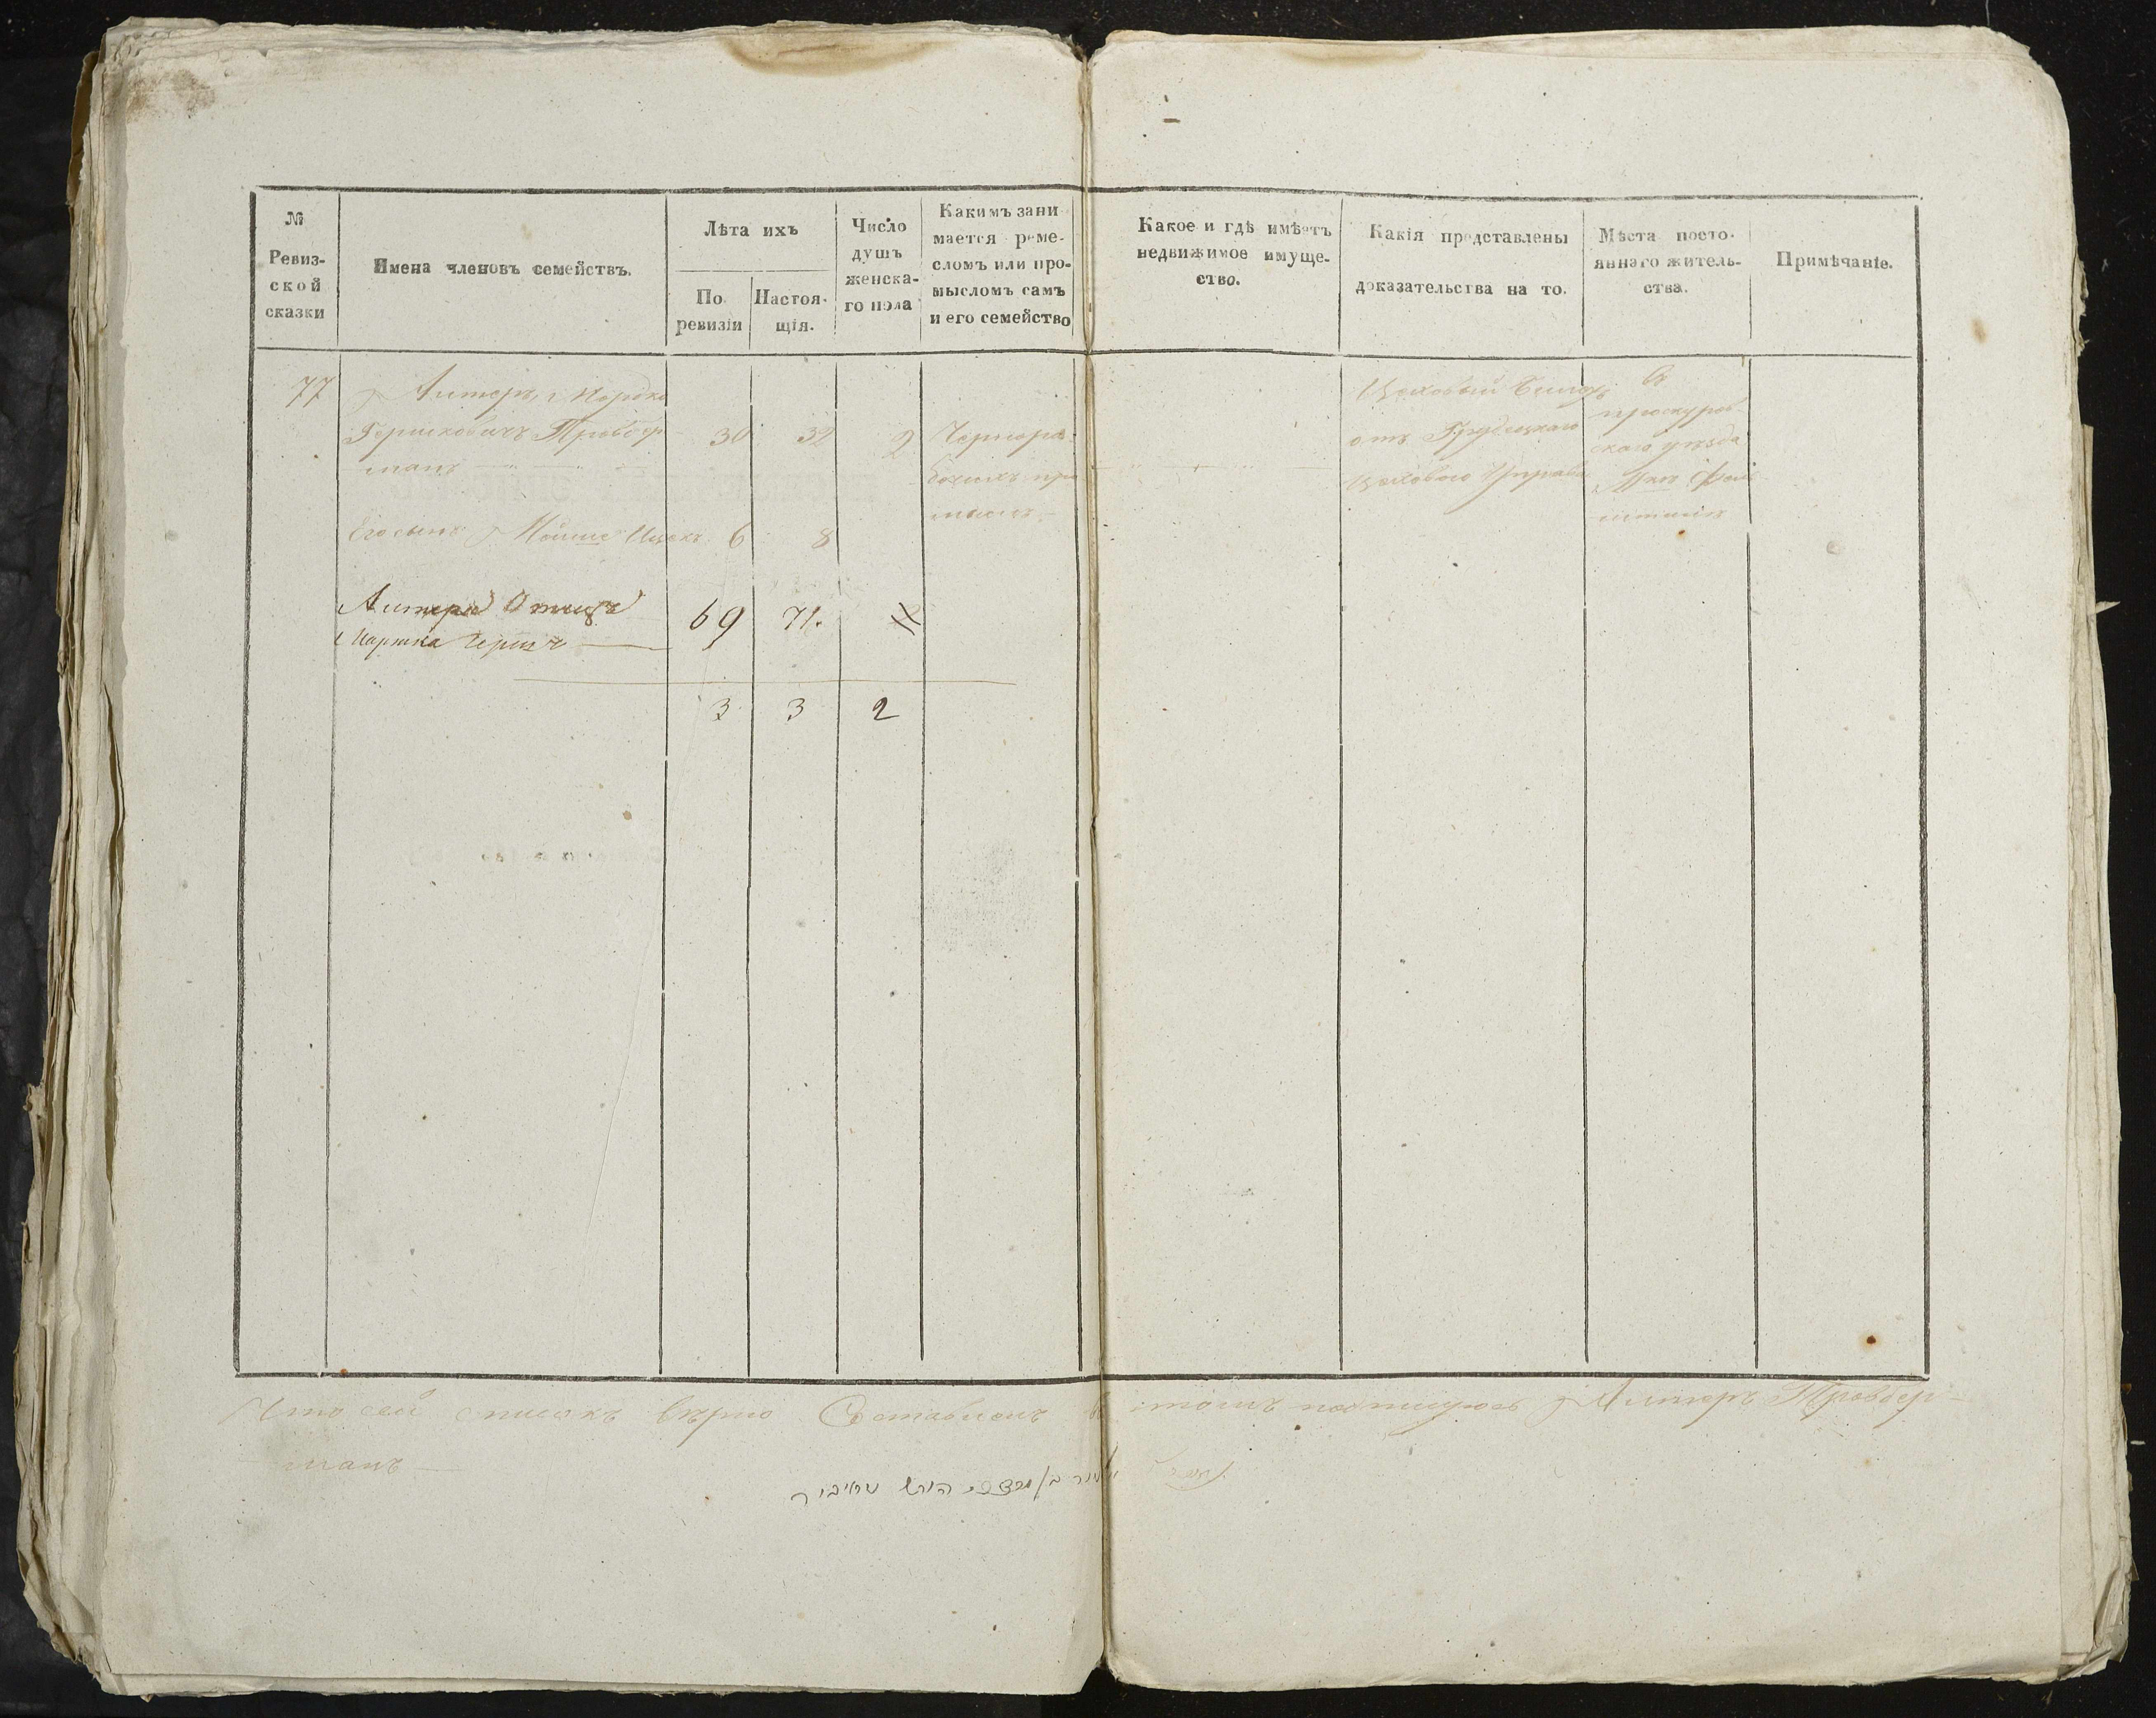 №
Ревиз-
ской
сказки
Имена членовъ семействъ.
Лѣта ихъ
По
ревизіи
Настоя-
щія.
Число
душъ
женска-
го пола
Какимъ зани
мается реме-
сломъ или про-
мысломъ самъ
и его семейство
Какое и гдѣ имѣетъ
недвижимое имуще-
ство.
Какія представлены
доказательства на то.
Мѣста посто-
яннаго житель-
ства.
Примѣчаніе.
77
Алтеръ Мордко
Гершковичъ
30 32 2
Чернора-
бочимъ про
мысл.
Цеховый билетъ
отъ
Цеховаго Управ
въ
проскуров-
скаго уѣзда
Его сынъ Мойше Ицекъ 6 8
Алтера Отецъ
69 71.
3 3 2
Что сей списокъ вѣрно Составленъ въ томъ подписуюсь Алтеръ
манъ